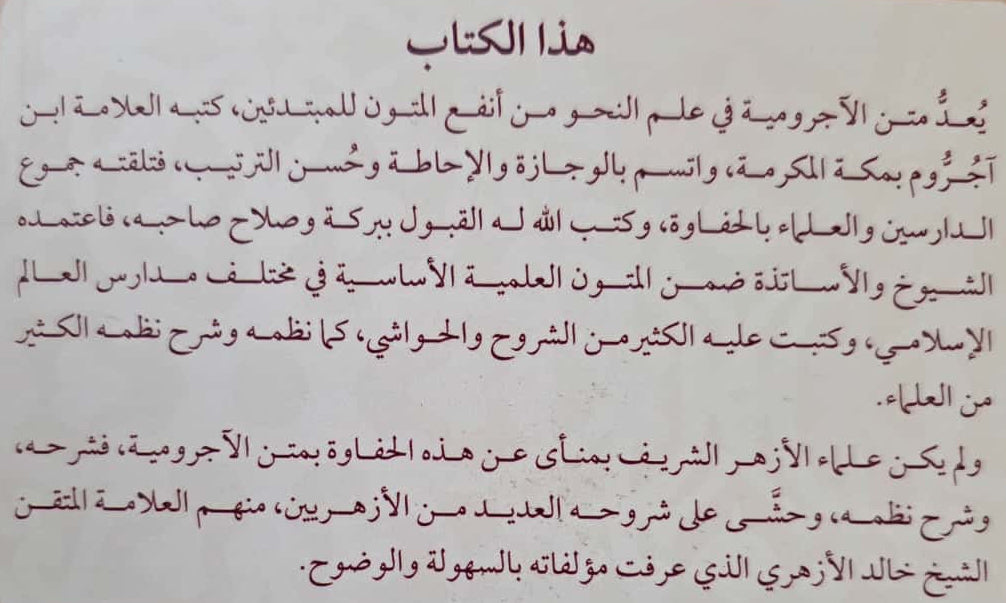 هذا الكتاب
يُعدُّ متن الآجرومية في علم النحو من أنفع المتون للمبتدئين، كتبه العلامة ابن
آجُرُّوم بمكة المكرمة، واتسم بالوجازة والإحاطة وحُسن الترتيب، فتلقته جموع
الدارسين والعلماء بالحفاوة، وكتب الله له القبول ببركة وصلاح صاحبه، فاعتمده
الشيوخ والأساتذة ضمن المتون العلمية الأساسية في مختلف مدارس العالم
الإسلامي، وكتبت عليه الكثير من الشروح والحواشي، كما نظمه وشرح نظمه الكثير
من العلماء.
ولم يكن علماء الأزهر الشريف بمنأى عن هذه الحفاوة بمتن الآجرومية، فشرحه،
وشرح نظمه، وحشَّى على شروحه العديد من الأزهريين، منهم العلامة المتقن
الشيخ خالد الأزهري الذي عرفت مؤلفاته بالسهولة والوضوح.